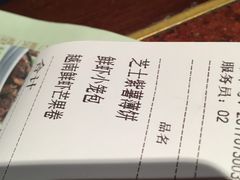 服务员：02
品名
芝士紫薯薄饼
鲜虾小笼包
越南鲜虾芒果卷